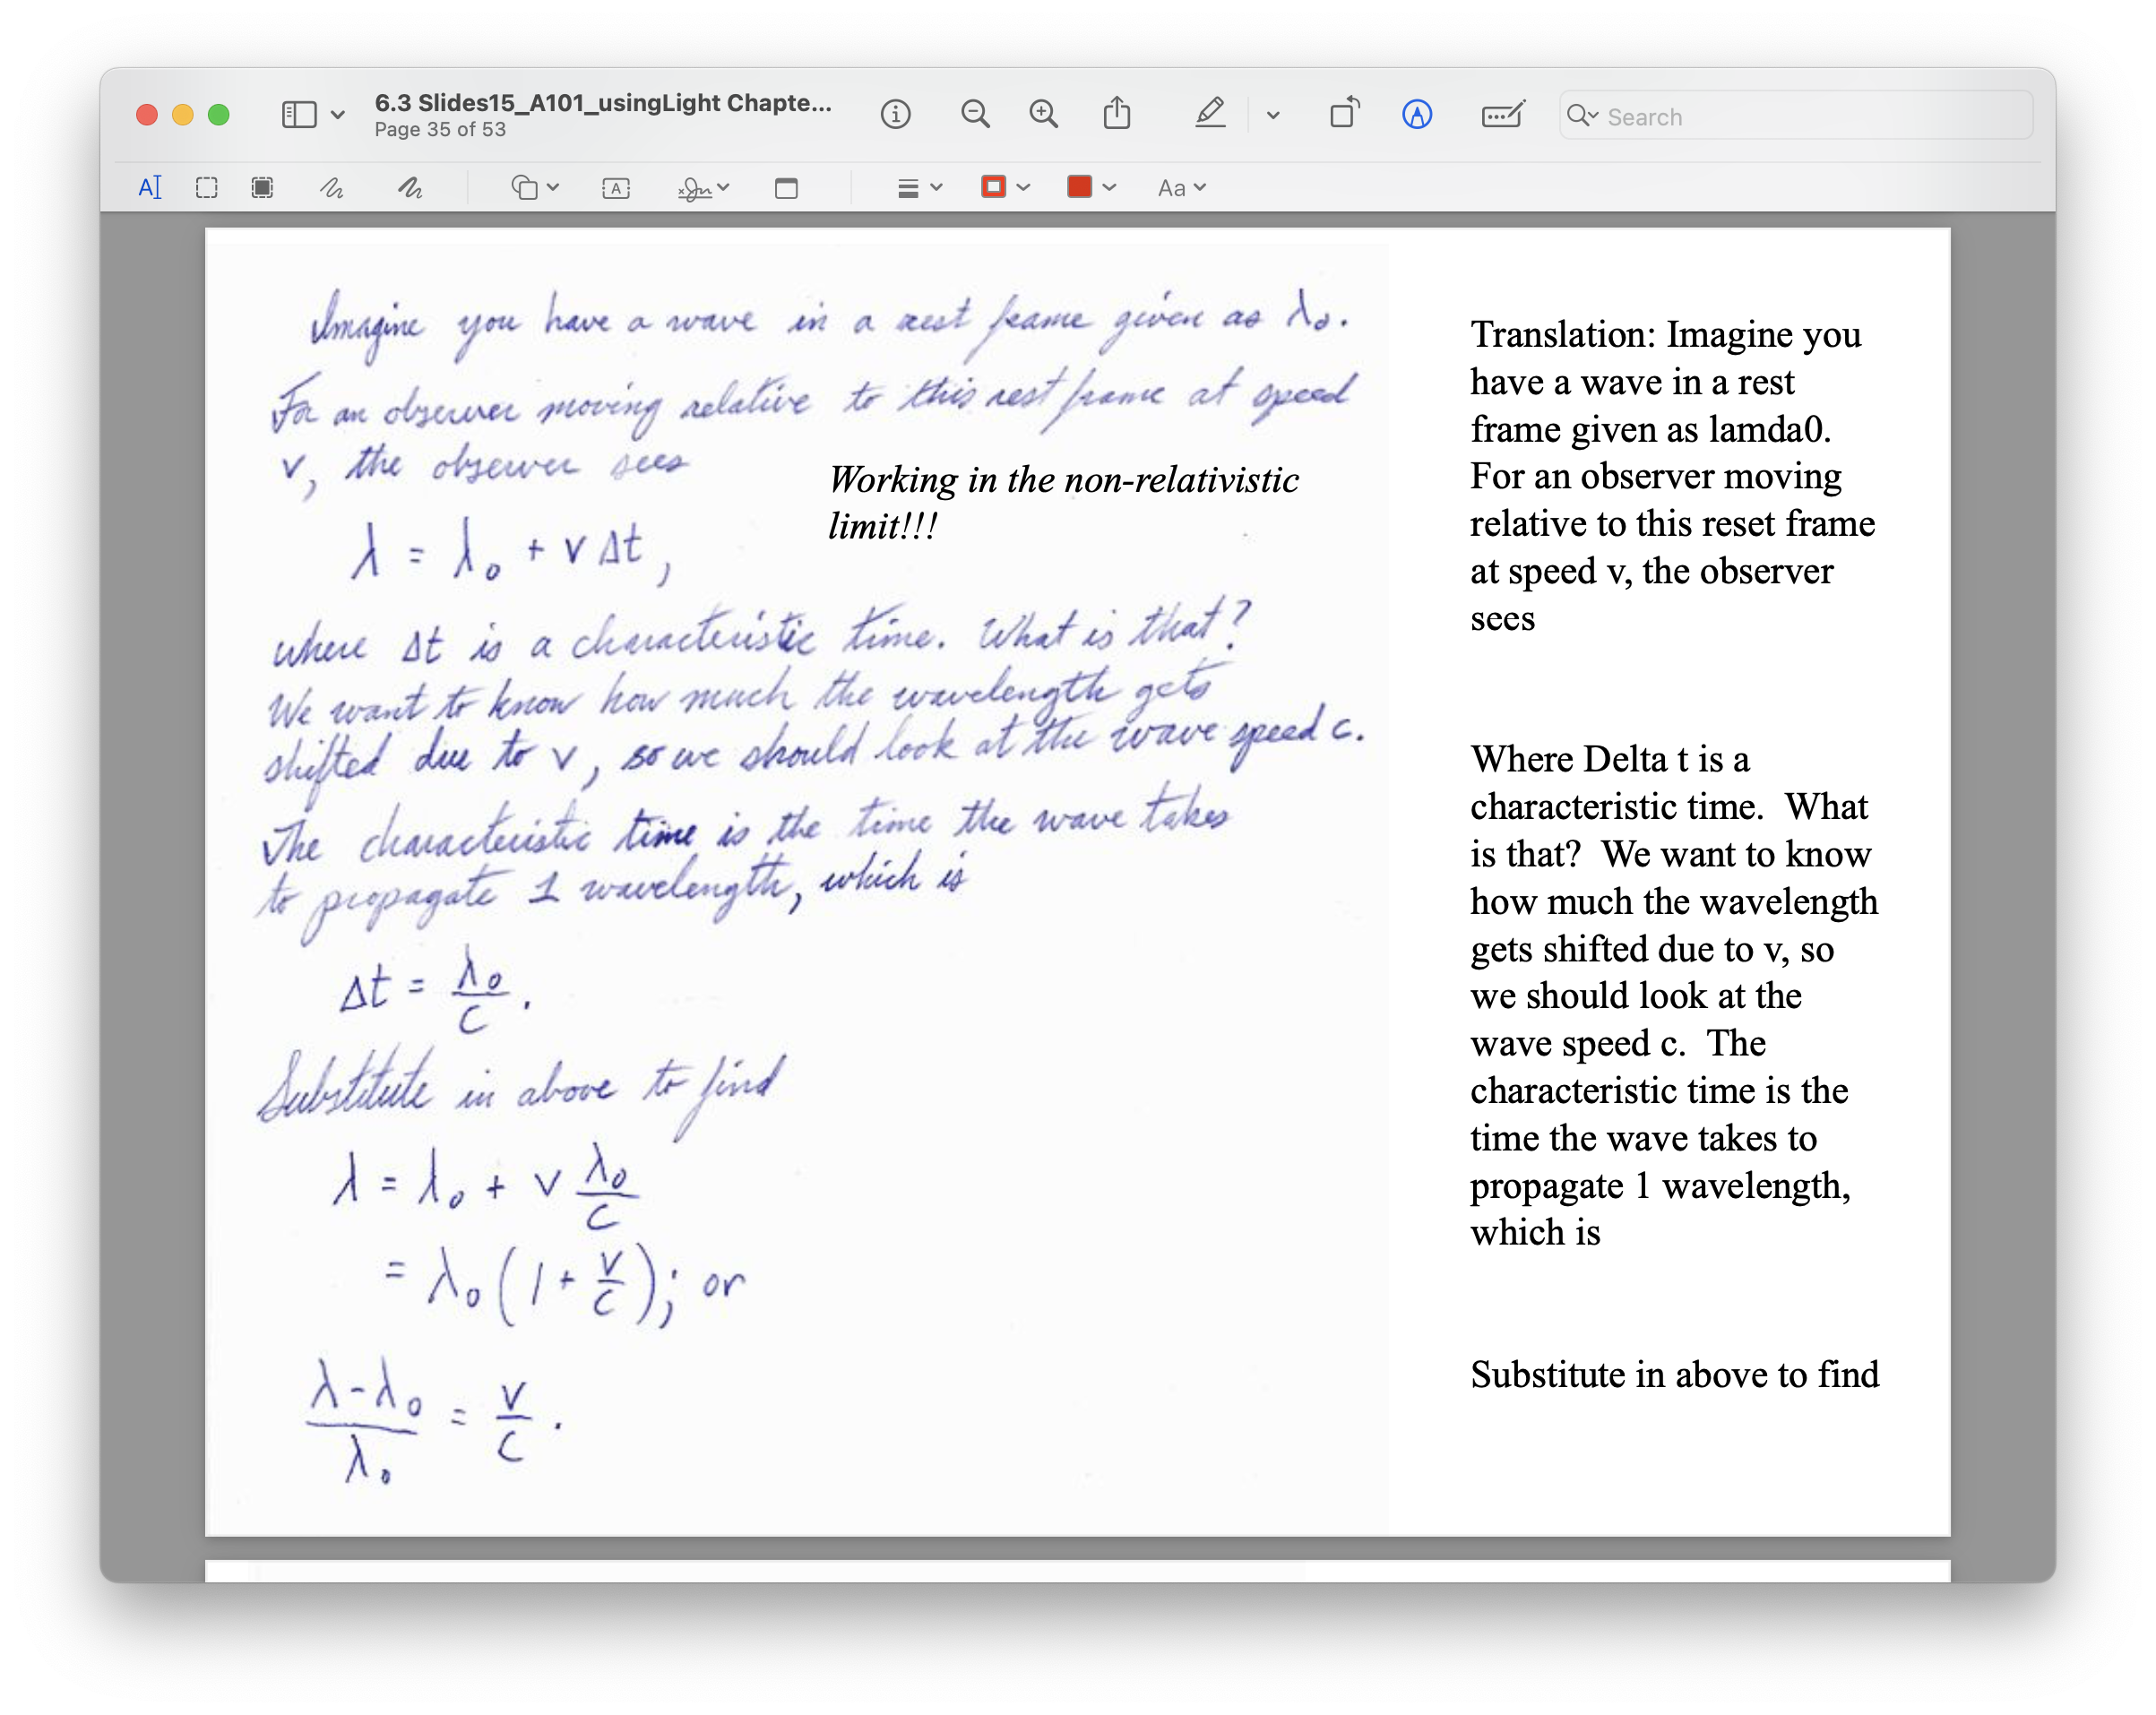 6.3 Slides15_A101_usingLight Chapte...
Page 35 of 53
Search
Aa
Imagine you have a wave in a rest frame given as λ₀.
For an observer moving relative to this rest frame at speed
v, the observer sees
Working in the non-relativistic
limit!!!
λ = λ₀ + v Δt,
where Δt is a characteristic time. What is that?
We want to know how much the wavelength gets
shifted due to v, so we should look at the wave speed c.
The characteristic time is the time the wave takes
to propagate 1 wavelength, which is
Δt = λ₀/c.
Substitute in above to find
λ = λ₀ + v λ₀/c
= λ₀(1 + v/c); or
(λ-λ₀)/λ₀ = v/c.
Translation: Imagine you
have a wave in a rest
frame given as lamda0.
For an observer moving
relative to this reset frame
at speed v, the observer
sees
Where Delta t is a
characteristic time.  What
is that?  We want to know
how much the wavelength
gets shifted due to v, so
we should look at the
wave speed c.  The
characteristic time is the
time the wave takes to
propagate 1 wavelength,
which is
Substitute in above to find